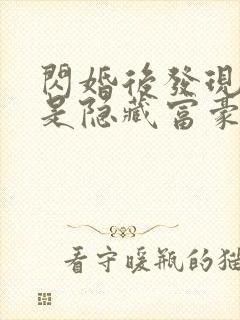 閃婚後發現
是隐藏富豪
看守暖瓶的猫